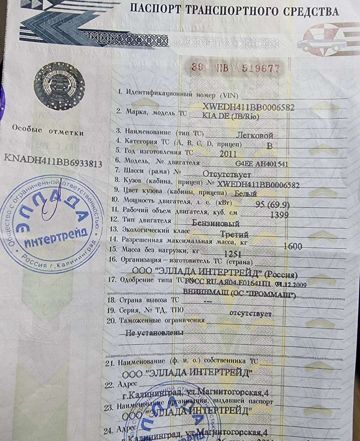 ПАСПОРТ ТРАНСПОРТНОГО СРЕДСТВА
39 НВ 519677
Особые отметки
KNADH411BB6933813
1. Идентификационный номер (VIN) XWEDH411BB0006582
2. Марка, модель ТС KIA DE (JB/Rio)
3. Наименование (тип ТС) Легковой
4. Категория ТС (A, B, C, D, прицеп) B
5. Год изготовления ТС 2011
6. Модель, № двигателя G4EE AH401541
7. Шасси (рама) № Отсутствует
8. Кузов (кабина, прицеп) № XWEDH411BB0006582
9. Цвет кузова (кабины, прицепа) Белый
10. Мощность двигателя, л. с. (кВт) 95 (69.9)
11. Рабочий объем двигателя, куб. см 1399
12. Тип двигателя Бензиновый
13. Экологический класс Третий
14. Разрешенная максимальная масса, кг 1600
15. Масса без нагрузки, кг 1251
16. Организация - изготовитель ТС (страна)
ООО "ЭЛЛАДА ИНТЕРТРЕЙД" (Россия)
17. Одобрение типа ТС №
ВНИИНМАШ (ОС "ПРОММАШ")
18. Страна вывоза ТС ---
19. Серия, № ТД, ТПО отсутствует
20. Таможенные ограничения
Не установлены
21. Наименование (ф. и. о.) собственника ТС
ООО "ЭЛЛАДА ИНТЕРТРЕЙД"
22. Адрес
г.Калининград, ул.Магнитогорская,4
23. Наименование организации, выдавшей паспорт
ООО "ЭЛЛАДА ИНТЕРТРЕЙД"
24. Адрес
г.Калининград, ул.Магнитогорская,4
Общество с ограниченной ответственностью
ЭЛЛАДА
Интертрейд
Россия г.Калининград
ЭЛЛАДА